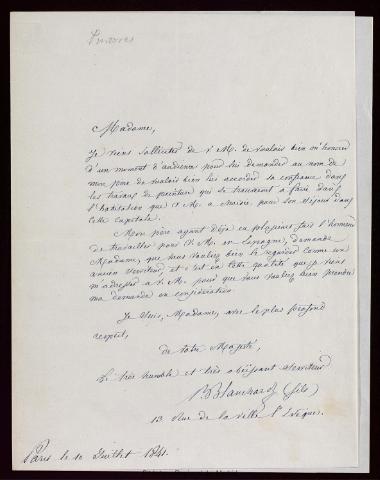 Madame,
Je viens solliciter de V. M. de vouloir bien m'honorer
d'un moment d'audience pour lui demander au nom de
mon père de vouloir bien lui accorder sa confiance dans
les travaux de peinture qui se trouveront à faire dans
l'habitation que V. M. a choisie pour son séjour dans
cette capitale.
Mon père ayant déjà eu plusieurs fois l'honneur
de travailler pour V. M. en Espagne, demande
Madame, que vous vouliez bien le regarder comme un
ancien serviteur, et c'est en cette qualité que je viens
m'adresser à V. M. pour que vous vouliez bien prendre
ma demande en considération.
Je suis, Madame, avec le plus profond
respect,
de Votre Majesté,
Le très humble et très obéissant serviteur
Blanchard (fils)
13 Rue de la ville l'Evêque.
Paris le 10 Juillet 1841.